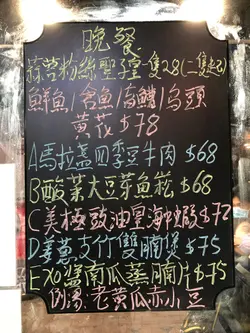 晚餐
蒜茸粉絲聖子皇一隻28(二隻起)
鮮魚/倉魚/烏頭
黃花$78
A馬拉盞四季豆牛肉$68
B酸菜大豆芽魚崧$68
C美極頭油海中蝦$72
D姜葱支竹雙腩煲$75
EXO醬南瓜蒸腩片$75
例湯:老黃瓜赤小豆